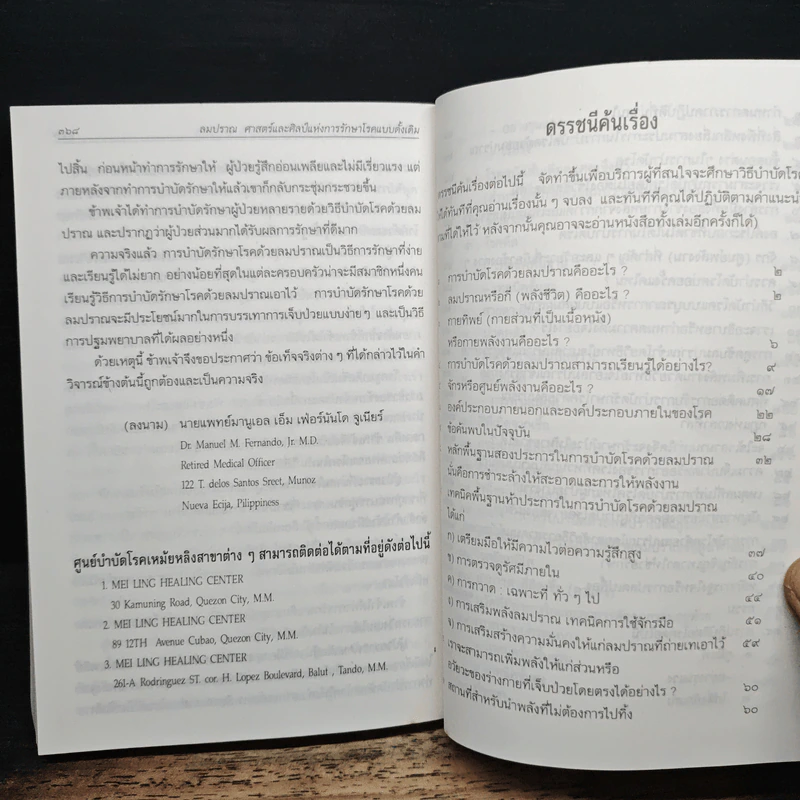 ๓๖๘ ลมปราณ ศาสตร์และศิลป์แห่งการรักษาโรคแบบดั้งเดิม
ไปสิ้น ก่อนหน้าทำการรักษาให้ ผู้ป่วยรู้สึกอ่อนเพลียและไม่มีเรี่ยวแรง แต่
ภายหลังจากทำการบำบัดรักษาให้แล้วเขาก็กลับกระชุ่มกระชวยขึ้น
ข้าพเจ้าได้ทำการบำบัดรักษาผู้ป่วยหลายรายด้วยวิธีบำบัดโรคด้วยลม
ปราณ และปรากฏว่าผู้ป่วยส่วนมากได้รับผลการรักษาที่ดีมาก
ความจริงแล้ว การบำบัดรักษาโรคด้วยลมปราณเป็นวิธีการรักษาที่ง่าย
และเรียนรู้ได้ไม่ยาก อย่างน้อยที่สุดในแต่ละครอบครัวน่าจะมีสมาชิกหนึ่งคน
เรียนรู้วิธีการบำบัดรักษาโรคด้วยลมปราณเอาไว้ การบำบัดรักษาโรคด้วย
ลมปราณจะมีประโยชน์มากในการบรรเทาการเจ็บป่วยแบบง่ายๆ และเป็นวิธี
การปฐมพยาบาลที่ได้ผลอย่างหนึ่ง
ด้วยเหตุกนี้ ข้าพเจ้าจึงขอประกาศว่า ข้อเท็จจริงต่าง ๆ ที่ได้กล่าวไว้ในคำ
วิจารณ์ข้างต้นนี้ถูกต้องและเป็นความจริง
(ลงนาม) นายแพทย์มานูเอล เอ็ม เฟอร์นันโด จูเนียร์
Dr. Manuel M. Fernando, Jr. M.D.
Retired Medical Officer
122 T. delos Santos Sreet, Munoz
Nueva Ecija, Pilippiness
ศูนย์บำบัดโรคเหมัยหลิงสาขาต่าง ๆ สามารถติดต่อได้ตามที่อยู่ดังต่อไปนี้
1. MEI LING HEALING CENTER
30 Kamuning Road, Quezon City, M.M.
2. MEI LING HEALING CENTER
89 12TH Avenue Cubao, Quezon City, M.M.
3. MEI LING HEALING CENTER
261-A Rodringuez ST. cor. H. Lopez Boulevard, Balut , Tando, M.M.
ดรรชนีค้นเรื่อง
ดรรชนีค้นเรื่องต่อไปนี้ จัดทำขึ้นเพื่อบริการผู้ที่สนใจจะศึกษาวิธีบำบัดโรค
ได้ทันทีที่คุณอ่านเรื่องนั้น ๆ จบลง และทันทีที่คุณได้ปฏิบัติตามคำแนะนำ
ที่ได้ให้ไว้ หลังจากนั้นคุณอาจจะอ่านหนังสือทั้งเล่มอีกครั้งก็ได้)
การบำบัดโรคด้วยลมปราณคืออะไร ? ๒
ลมปราณหรือกี่ (พลังชีวิต) คืออะไร ? ๒
กายทิพย์ (กายส่วนที่เป็นเนื้อหนัง)
หรือกายพลังงานคืออะไร ? ๖
การบำบัดโรคด้วยลมปราณสามารถเรียนรู้ได้อย่างไร? ๙
จักรหรือศูนย์พลังงานคืออะไร ? ๑๗
องค์ประกอบภายนอกและองค์ประกอบภายในของโรค ๒๒
ข้อค้นพบในปัจจุบัน ๒๘
หลักพื้นฐานสองประการในการบำบัดโรคด้วยลมปราณ ๓๒
นั่นคือการชำระล้างให้สะอาดและการให้พลังงาน
เทคนิคพื้นฐานห้าประการในการบำบัดโรคด้วยลมปราณ
ได้แก่
ก) เตรียมมือให้มีความไวต่อความรู้สึกสูง ๓๗
ข) การตรวจดูรัศมีภายใน ๔๐
ค) การกวาด : เฉพาะที่ ทั่ว ๆ ไป ๔๔
ง) การเสริมพลังลมปราณ เทคนิคการใช้จักรมือ ๕๑
จ) การเสริมสร้างความมั่นคงให้แก่ลมปราณที่ถ่ายเทเอาไว้ ๕๙
เราจะสามารถเพิ่มพลังให้แก่ส่วนหรือ
อวัยวะของร่างกายที่เจ็บป่วยโดยตรงได้อย่างไร ? ๖๐
สถานที่สำหรับนำพลังที่ไม่ต้องการไปทิ้ง ๖๐